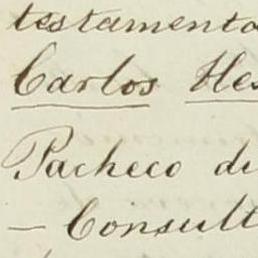 testamento
Carlos Hes
Pacheco di
— Consult